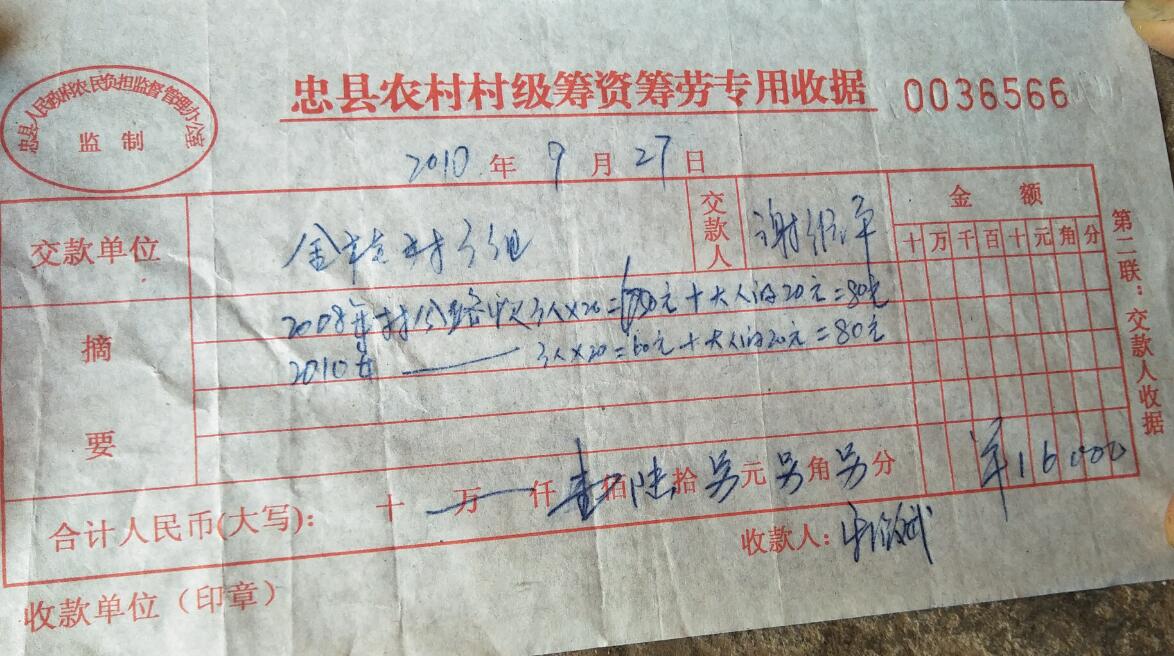 忠县人民政府农民负担监督管理办公室
监制
忠县农村村级筹资筹劳专用收据 0036566
2010年9月27日
交款单位 金 村 3组 交款人 谢 平 金额
十万千百十元角分
摘要
2008年村公路收3人×20=60元+大人的20元=80元
2010年 —— 3人×20=60元+大人的20元=80元
合计人民币(大写): 十万仟壹佰陆拾另元另角另分 ¥16000
收款人:
收款单位（印章）
第二联：交款人收据